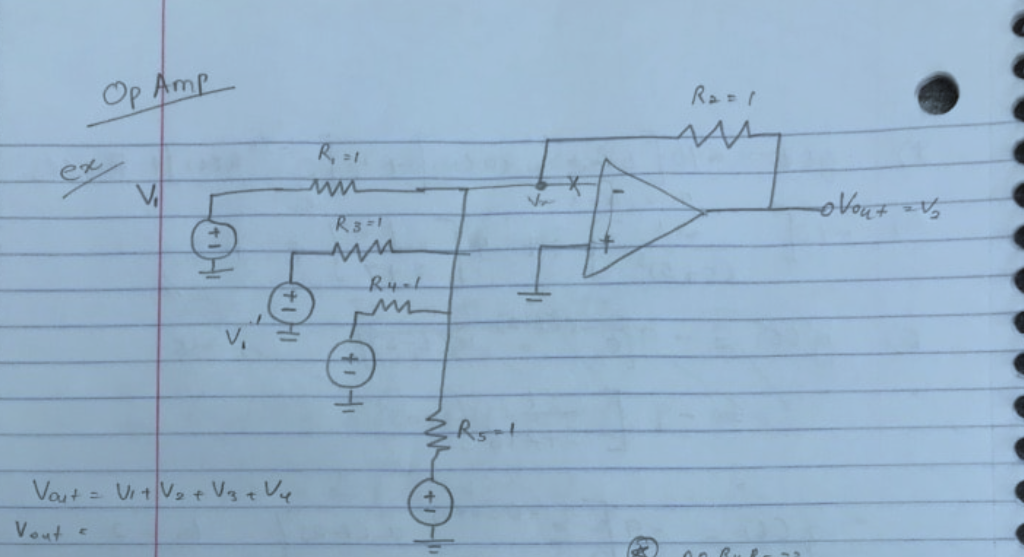 Op Amp
ex
R₂ = 1
R₁ = 1
V₁
R₃ = 1
R₄ = 1
Vₓ
x
-
+
Vout = V₂
+
-
+
-
V₁'
+
-
R₅ = 1
+
-
Vout = V₁ + V₂ + V₃ + V₄
Vout =